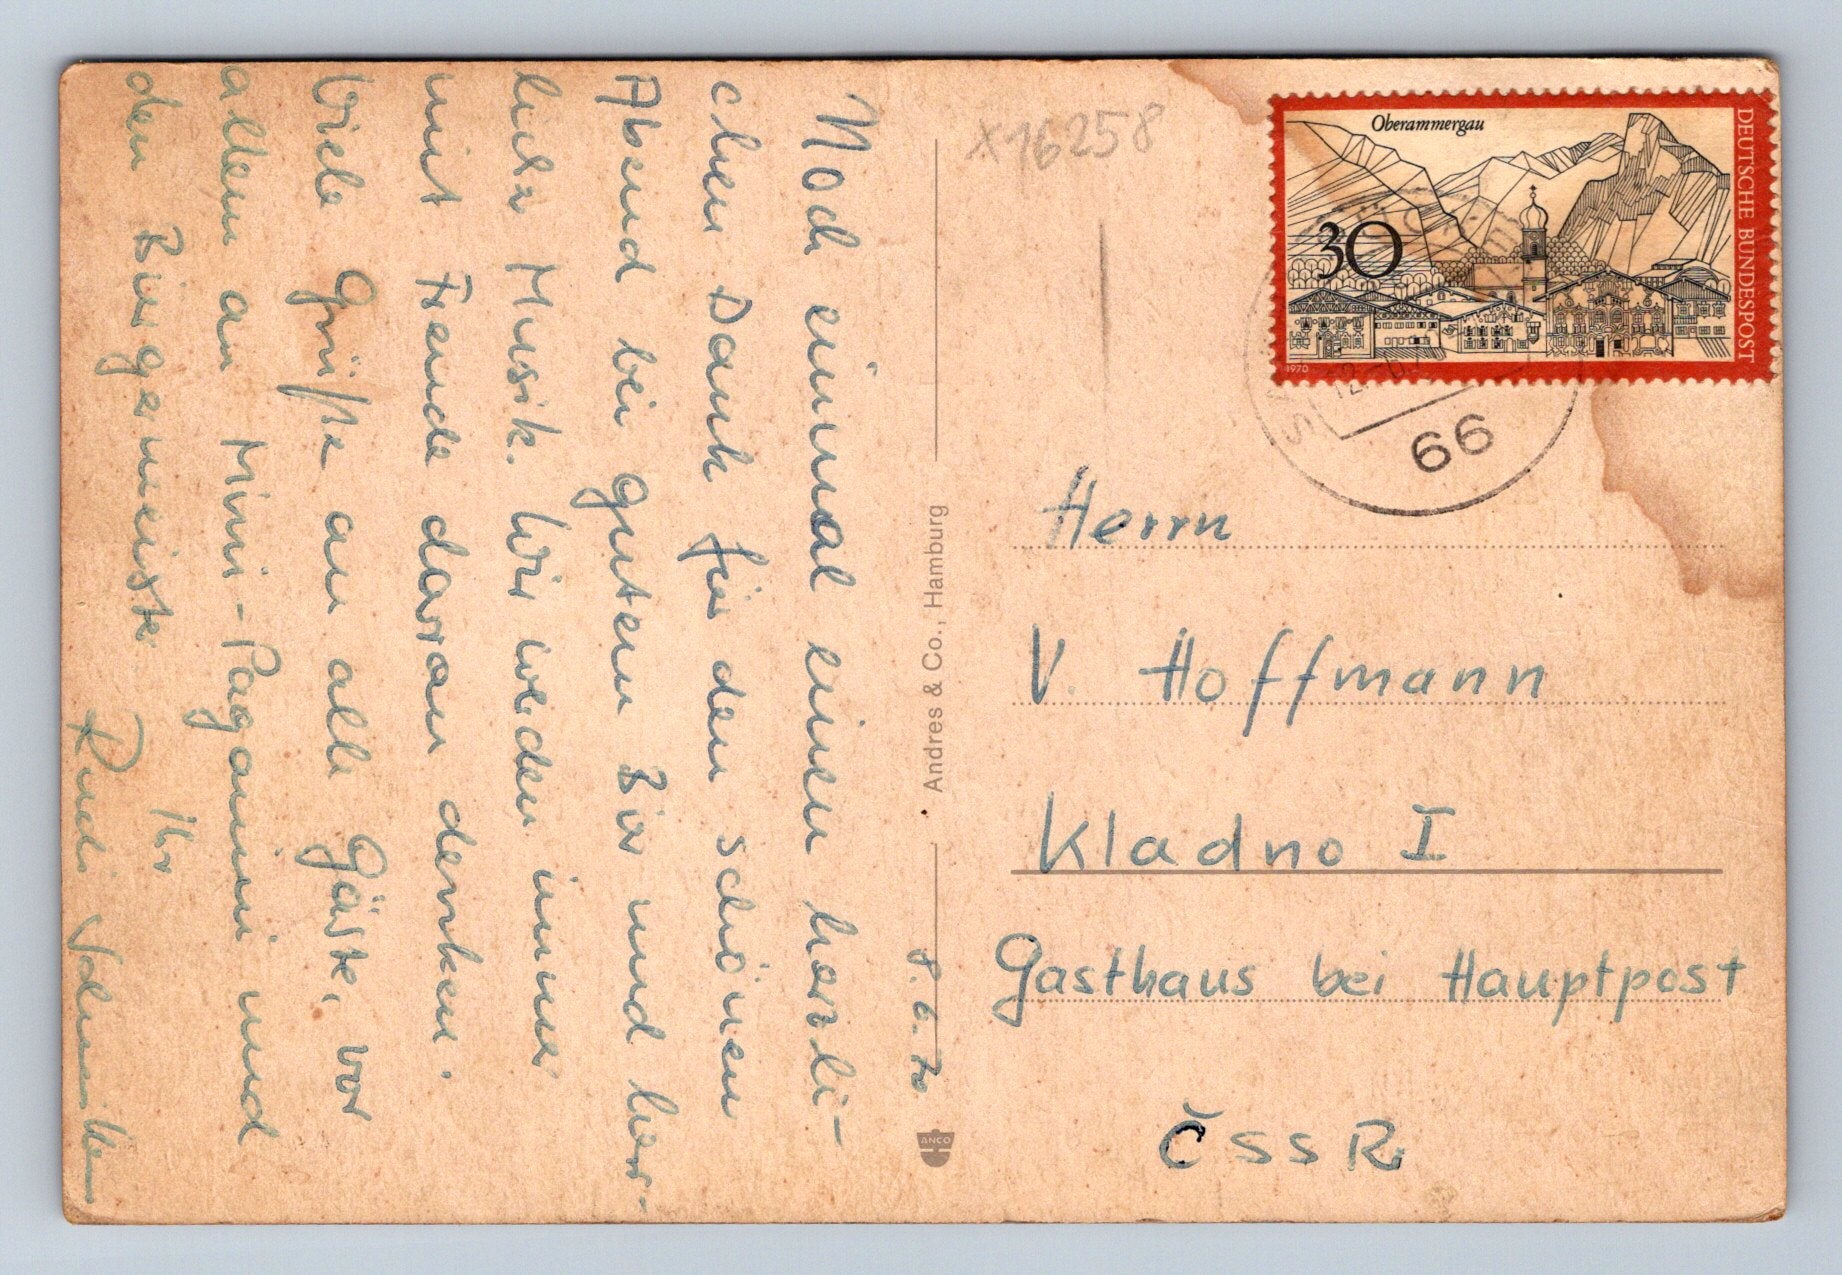 Noch einmal einen herzli-
chen Dank für den schönen
Abend bei gutem Bier und herr-
licher Musik. Wir werden immer
mit Freude daran denken.
Viele Grüße an alle Gäste, vor
allem an Mini-Paganini und
den Bürgermeister
Ihr
Rudi
8.6.70
Andres & Co., Hamburg
ANCO
X16258
Oberammergau
30
DEUTSCHE BUNDESPOST
1970
66
Herrn
V. Hoffmann
Kladno I
Gasthaus bei Hauptpost
ČSSR